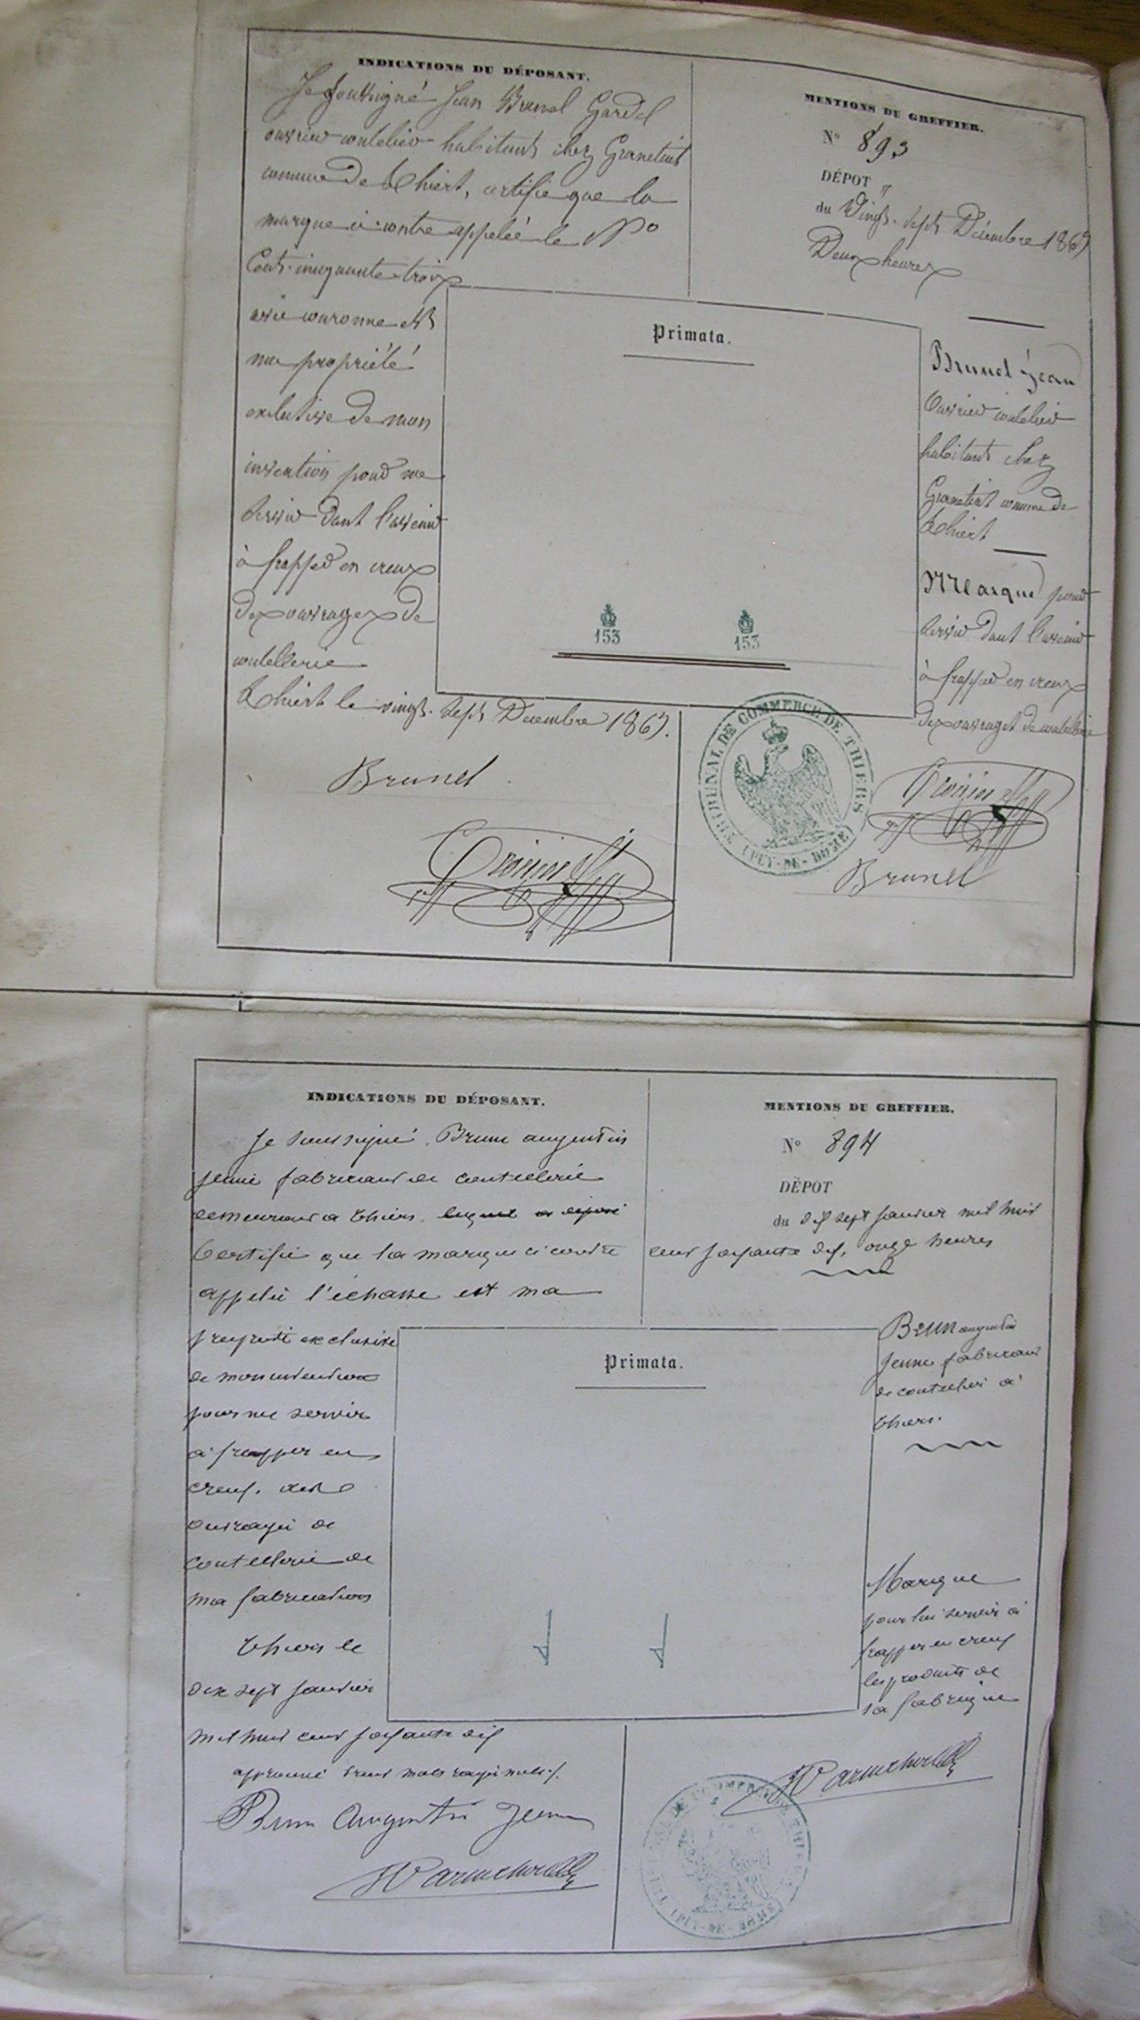 INDICATIONS DU DÉPOSANT.
Je soussigné Jean Brunel Gardel
ouvrier coutelier habitant chez Granetias
commune de Thiers, certifie que la
marque ci-contre appelée le No
Cent-cinquante-trois
avec couronne est
ma propriété
exclusive de mon
invention pour me
servir dans l'avenir
à frapper en creux
des ouvrages de
coutellerie
Thiers le vingt-sept Décembre 1869.
Brunel
MENTIONS DU GREFFIER.
No 893
DÉPOT
du Vingt-sept Décembre 1869
Deux heures
Primata.
153
153
Brunel Jean
Ouvrier coutelier
habitant chez
Granetias commune de
Thiers
Marque pour
servir dans l'avenir
à frapper en creux
des ouvrages de coutellerie
TRIBUNAL DE COMMERCE DE THIERS
(PUY-DE-DÔME)
Brunel
INDICATIONS DU DÉPOSANT.
Je soussigné, Brun augustin
jeune fabricant de coutellerie
demeurant à Thiers, lequel a déposé
Certifie que la marque ci contre
appelée l'échasse est ma
propriété exclusive
de mon invention
pour me servir
à frapper en
creux, des
ouvrages de
coutellerie de
ma fabrication
Thiers le
dix sept janvier
mil huit cent soixante dix
approuvé trois mots rayés nuls
Brun Augustin Jeune
MENTIONS DU GREFFIER.
No 894
DÉPOT
du dix sept janvier mil huit
cent soixante dix, onze heures
Primata.
Brun augustin
Jeune fabricant
de coutellerie à
Thiers.
Marque
pour lui servir à
frapper en creux
les produits de
sa fabrique